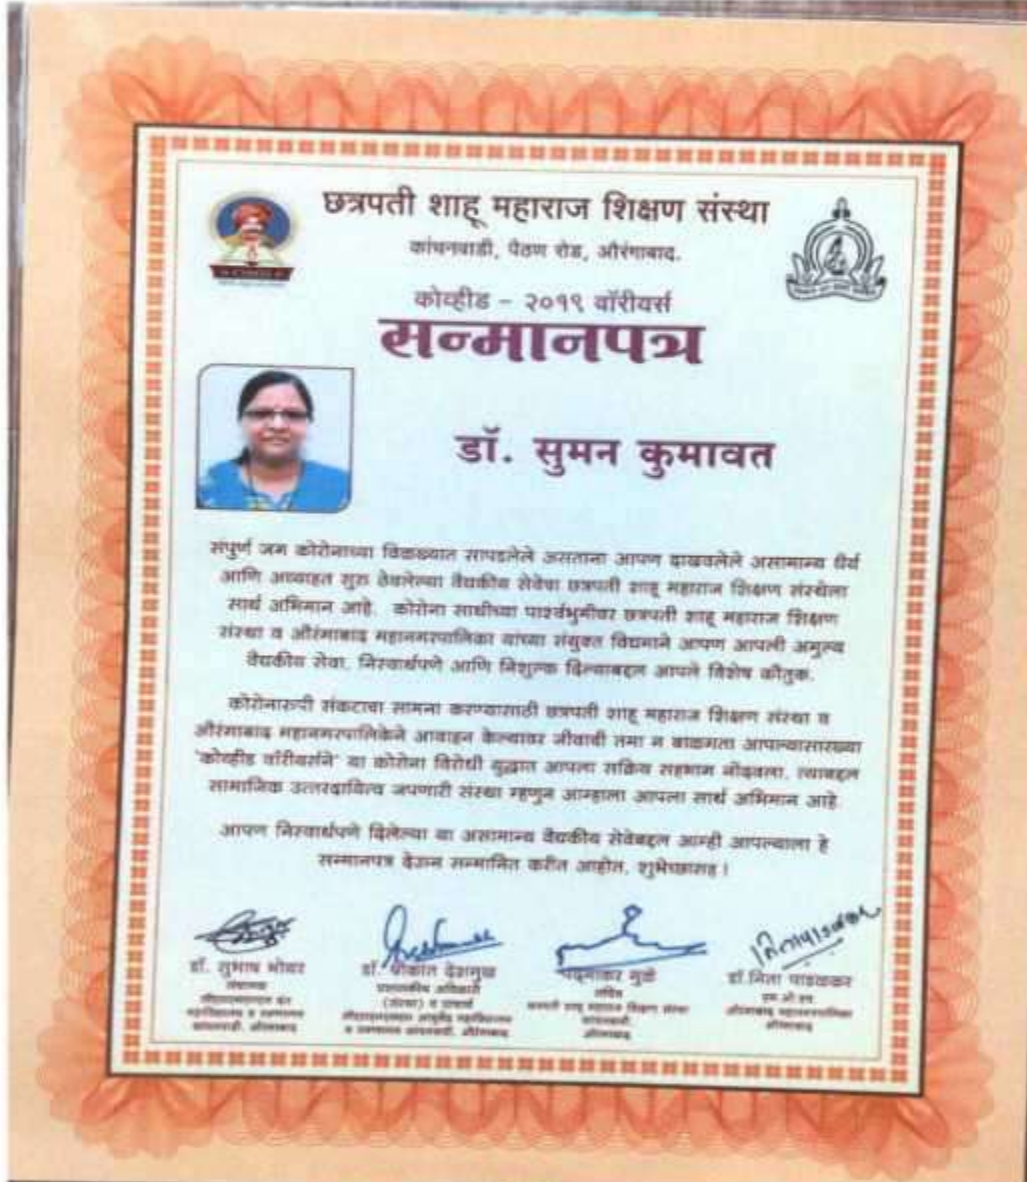 छत्रपती शाहू महाराज शिक्षण संस्था
कांचनवाडी, पैठण रोड, औरंगाबाद.
कोव्हीड - २०१९ वॉरीयर्स
सन्मानपत्र
डॉ. सुमन कुमावत
संपुर्ण जग कोरोनाच्या विळख्यात सापडलेले असताना आपण दाखवलेले असामान्य धैर्य
आणि अव्याहत सुरु ठेवलेल्या वैद्यकीय सेवेचा छत्रपती शाहू महाराज शिक्षण संस्थेला
सार्थ अभिमान आहे. कोरोना साथीच्या पार्श्वभुमीवर छत्रपती शाहू महाराज शिक्षण
संस्था व औरंगाबाद महानगरपालिका यांच्या संयुक्त विद्यमाने आपण आपली अमुल्य
वैद्यकीय सेवा, निस्वार्थपणे आणि निशुल्क दिल्याबद्दल आपले विशेष कौतुक.
कोरोनारुपी संकटाचा सामना करण्यासाठी छत्रपती शाहू महाराज शिक्षण संस्था व
औरंगाबाद महानगरपालिकेने आवाहन केल्यावर जीवाची तमा न बाळगता आपल्यासारख्या
'कोव्हीड वॉरीयर्सने' या कोरोना विरोधी युद्धात आपला सक्रिय सहभाग नोंदवला, त्याबद्दल
सामाजिक उत्तरदायित्व जपणारी संस्था म्हणुन आम्हाला आपला सार्थ अभिमान आहे.
आपण निस्वार्थपणे दिलेल्या या असामान्य वैद्यकीय सेवेबद्दल आम्ही आपल्याला हे
सन्मानपत्र देऊन सन्मानित करीत आहोत. शुभेच्छासह !
डॉ. सुभाष भोयर
डॉ. श्रीकांत देशमुख
पद्माकर मुळे
डॉ.निता पाडळकर
प्रशासकीय अधिकारी
सचिव
(संस्था) व प्राचार्य
छत्रपती शाहू महाराज शिक्षण संस्था
औरंगाबाद महानगरपालिका
कांचनवाडी, औरंगाबाद
व रुग्णालय कांचनवाडी, औरंगाबाद
औरंगाबाद
औरंगाबाद